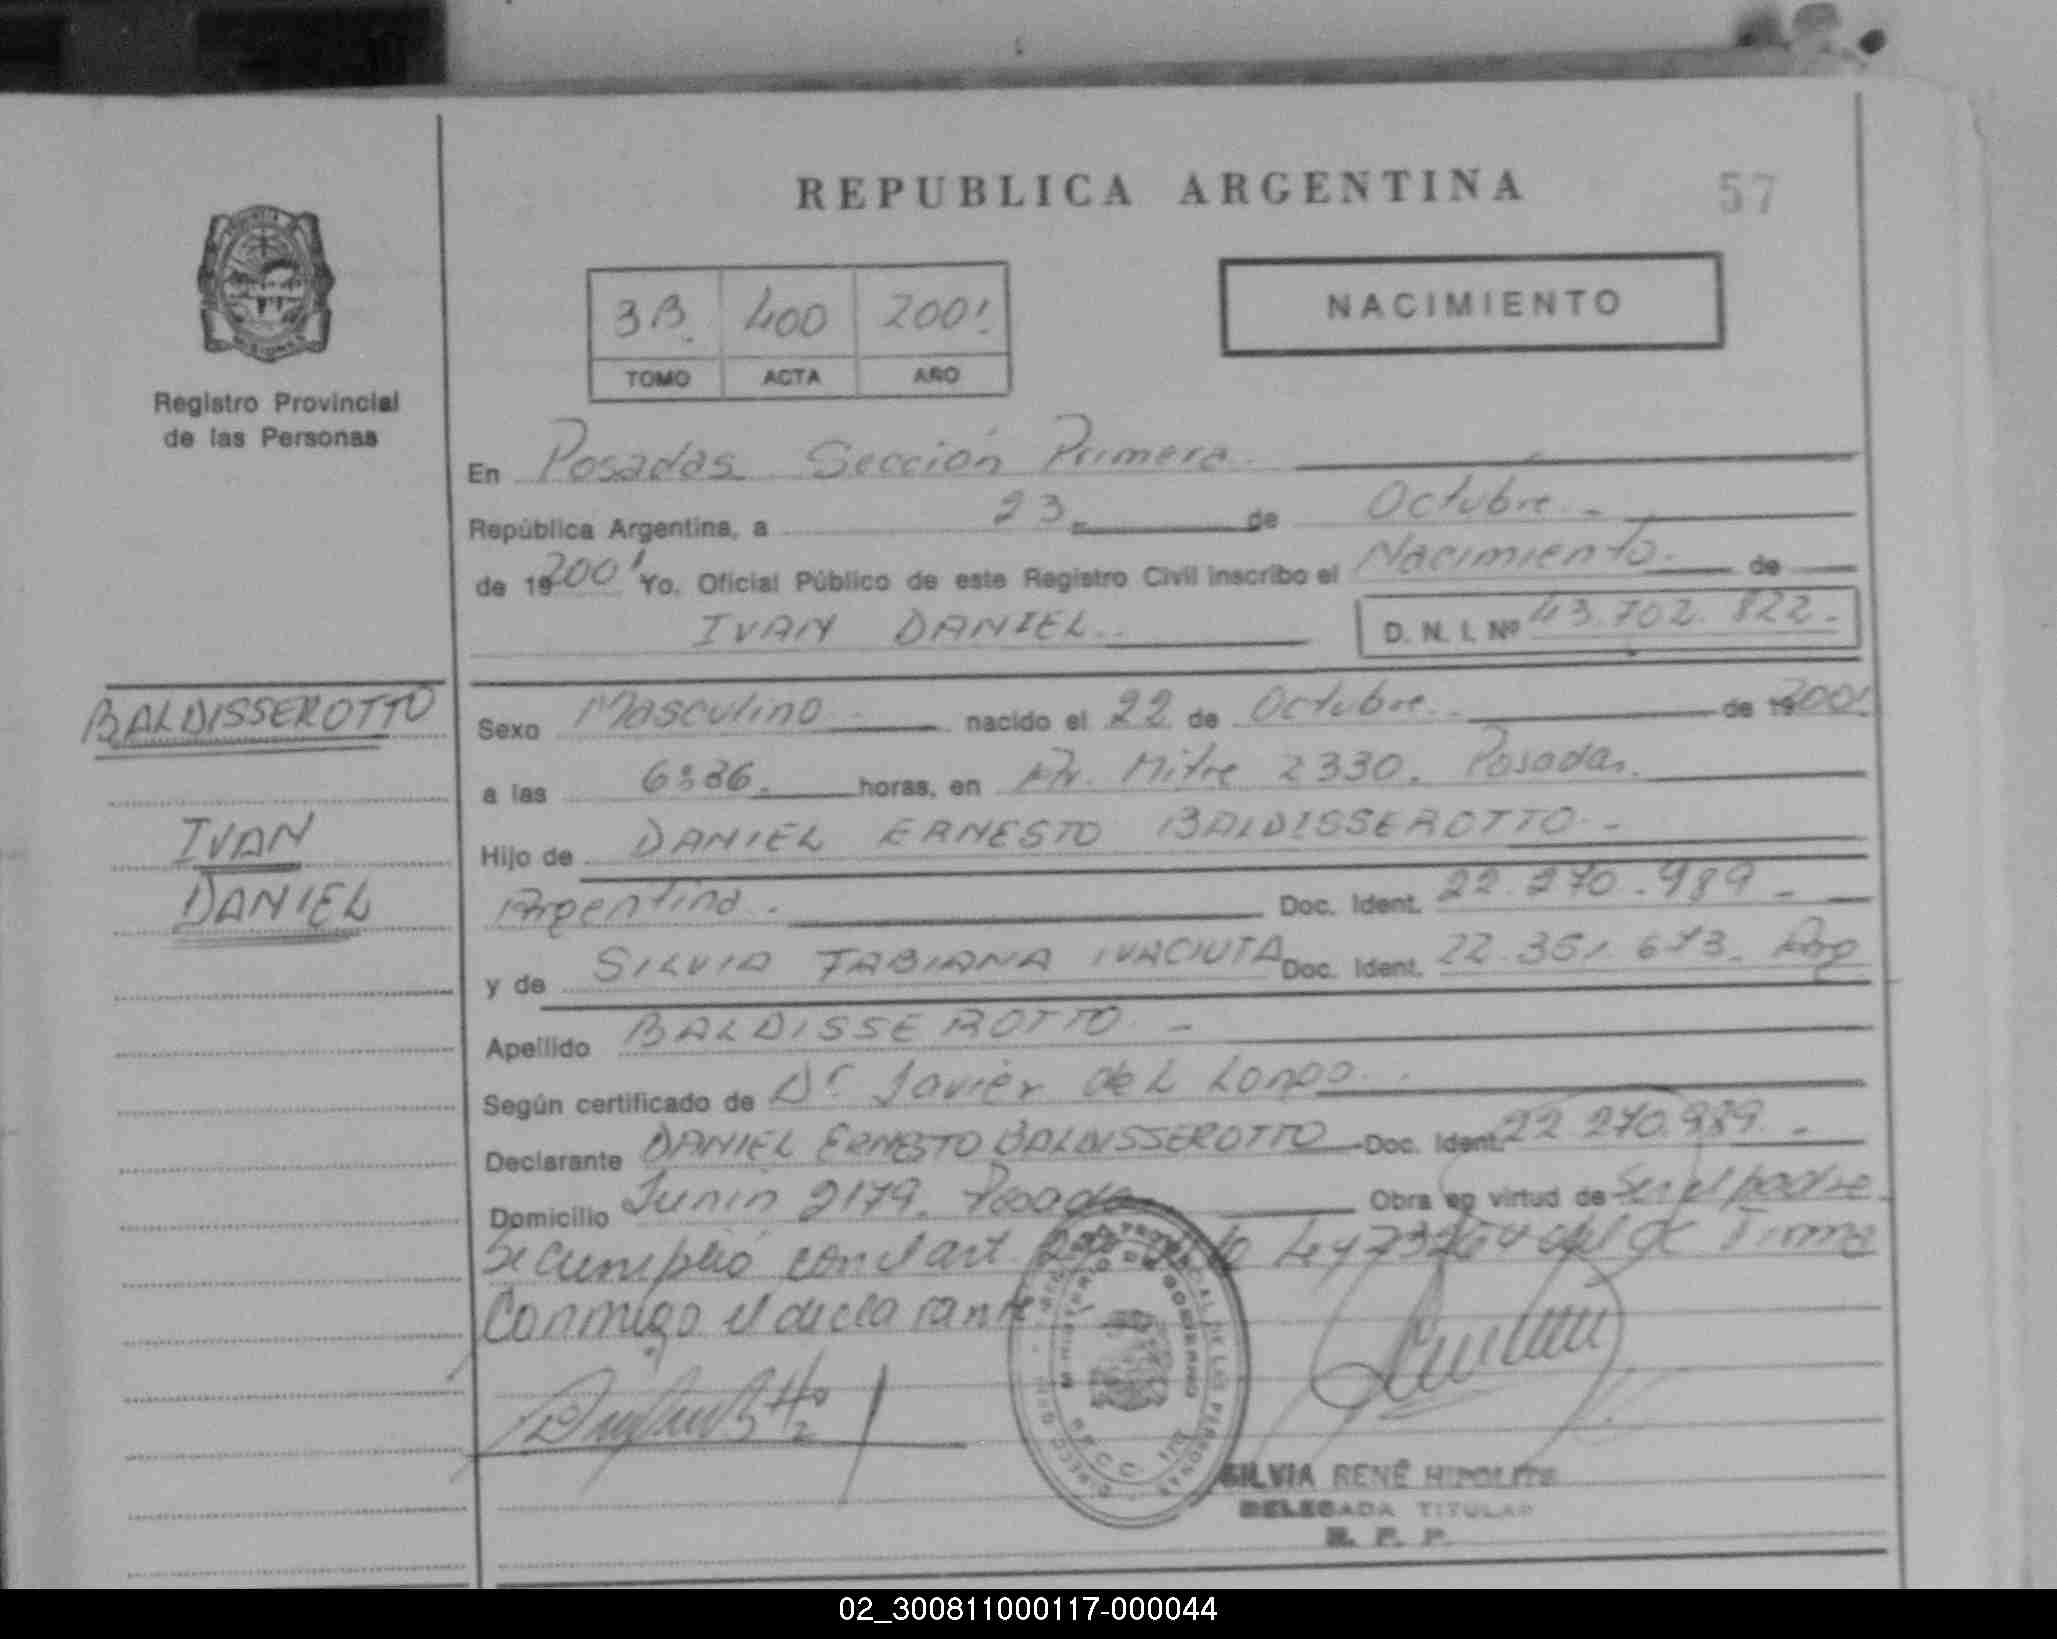 REPUBLICA ARGENTINA
57
Registro Provincial
de las Personas
3B. 400 2001.
TOMO ACTA AÑO
NACIMIENTO
En Posadas Sección Primera
República Argentina, a 23 de Octubre.-
de 192001 Yo. Oficial Público de este Registro Civil inscribo el Nacimiento. de
IVAN DANIEL.. D. N. I. Nº 43.702.822.-
BALDISSEROTTO
IVAN
DANIEL
Sexo Masculino nacido el 22 de Octubre. de 192001.
a las 6:36. horas, en Av. Mitre 2330. Posadas.
Hijo de DANIEL ERNESTO BALDISSEROTTO.-
Argentino. Doc. Ident. 22.270.989-
y de SILVIA FABIANA IVACIUTA Doc. Ident. 22.351.673. Arg
Apellido BALDISSEROTTO.-
Según certificado de Dr Javier del Longo..
Declarante DANIEL ERNESTO BALDISSEROTTO Doc. Ident. 22 270.989.-
Domicilio Junin 2179. Posadas Obra en virtud de Ser el padre
Se cumplió con el art. Ley Firma
Conmigo el declarante
MINISTERIO DE GOBIERNO
SILVIA RENÉ HIPOLITO
DELEGADA TITULAR
R. P. P.
02_300811000117-000044